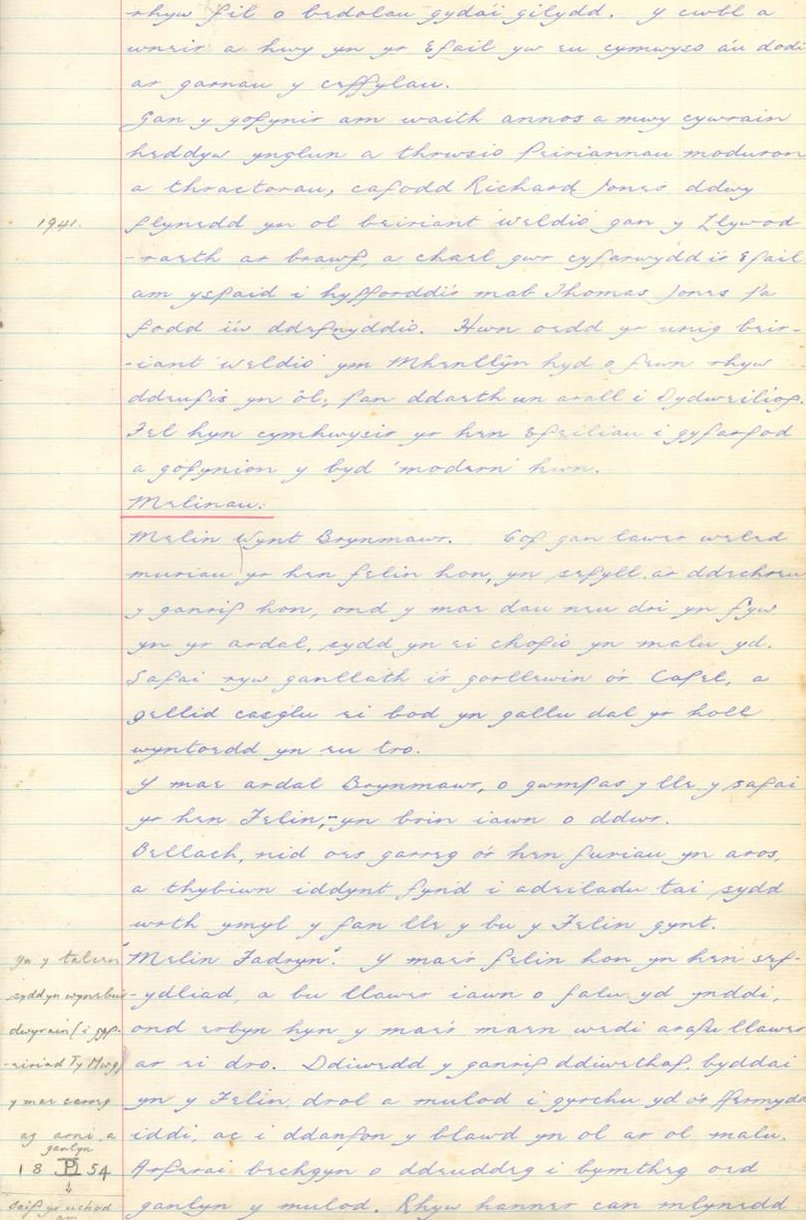 rhyw fil o bedolau gyda'i gilydd. Y cwbl a
wneir a hwy yn yr Efail yw eu cymwyso a'u dodi
ar garnau y ceffylau.
Gan y gofynir am waith annos a mwy cywrain
heddyw ynglun a thrwsio Peiriannau moduron
a thractorau, cafodd Richard Jones ddwy
1941.
flynedd yn ol beiriant 'weldio' gan y Llywod
-raeth ar brawf, a chael gwr cyfarwydd i'r Efail
am ysfaid i hyfforddi'r mab Thomas Jones pa
fodd i'w ddefnyddio. Hwn oedd yr unig beir-
-iant 'weldio' ym Mhenllŷn hyd o fewn rhyw
ddeufis yn ôl, pan ddaeth un arall i Dydweiliog.
Fel hyn cymhwysir yr hen Efeiliau i gyfarfod
a gofynion y byd 'modern' hwn.
Melinau:
Melin Wynt Brynmawr. Cof gan lawer weled
muriau yr hen felin hon, yn sefyll ar ddechreu
y ganrif hon, ond y mae dau neu dri yn fyw
yn yr ardal, sydd yn ei chofio yn malu yd.
Safai ryw ganllath i'r gorllewin o'r Capel, a
gellid casglu ei bod yn gallu dal yr holl
wyntoedd yn eu tro.
Y mae ardal Brynmawr, o gwmpas y lle y safai
yr hen Felin, - yn brin iawn o ddwr.
Bellach, nid oes garreg o'r hen furiau yn aros,
a thybiwn iddynt fynd i adeiladu tai sydd
wrth ymyl y fan lle y bu y Felin gynt.
"Melin Fadryn". Y mae'r felin hon yn hen sef-
-ydliad, a bu llawer iawn o falu yd ynddi,
ond erbyn hyn y mae'r maen wedi arafu llawer
ar ei dro. Ddiwedd y ganrif ddiwethaf, byddai
yn y Felin, drol a mulod i gyrchu yd o'r ffermydd
iddi, ac i ddanfon y blawd yn ol ar ol malu.
Arferai bechgyn o ddeuddeg i bymtheg oed
ganlyn y mulod. Rhyw hanner can mlynedd
Yn y talcen
sydd yn wynebu'r
dwyrain (i gyf-
-eiriad Ty Mwg)
y mae carreg
ag arni a
ganlyn
18 P 54
Saif yr uchod
am